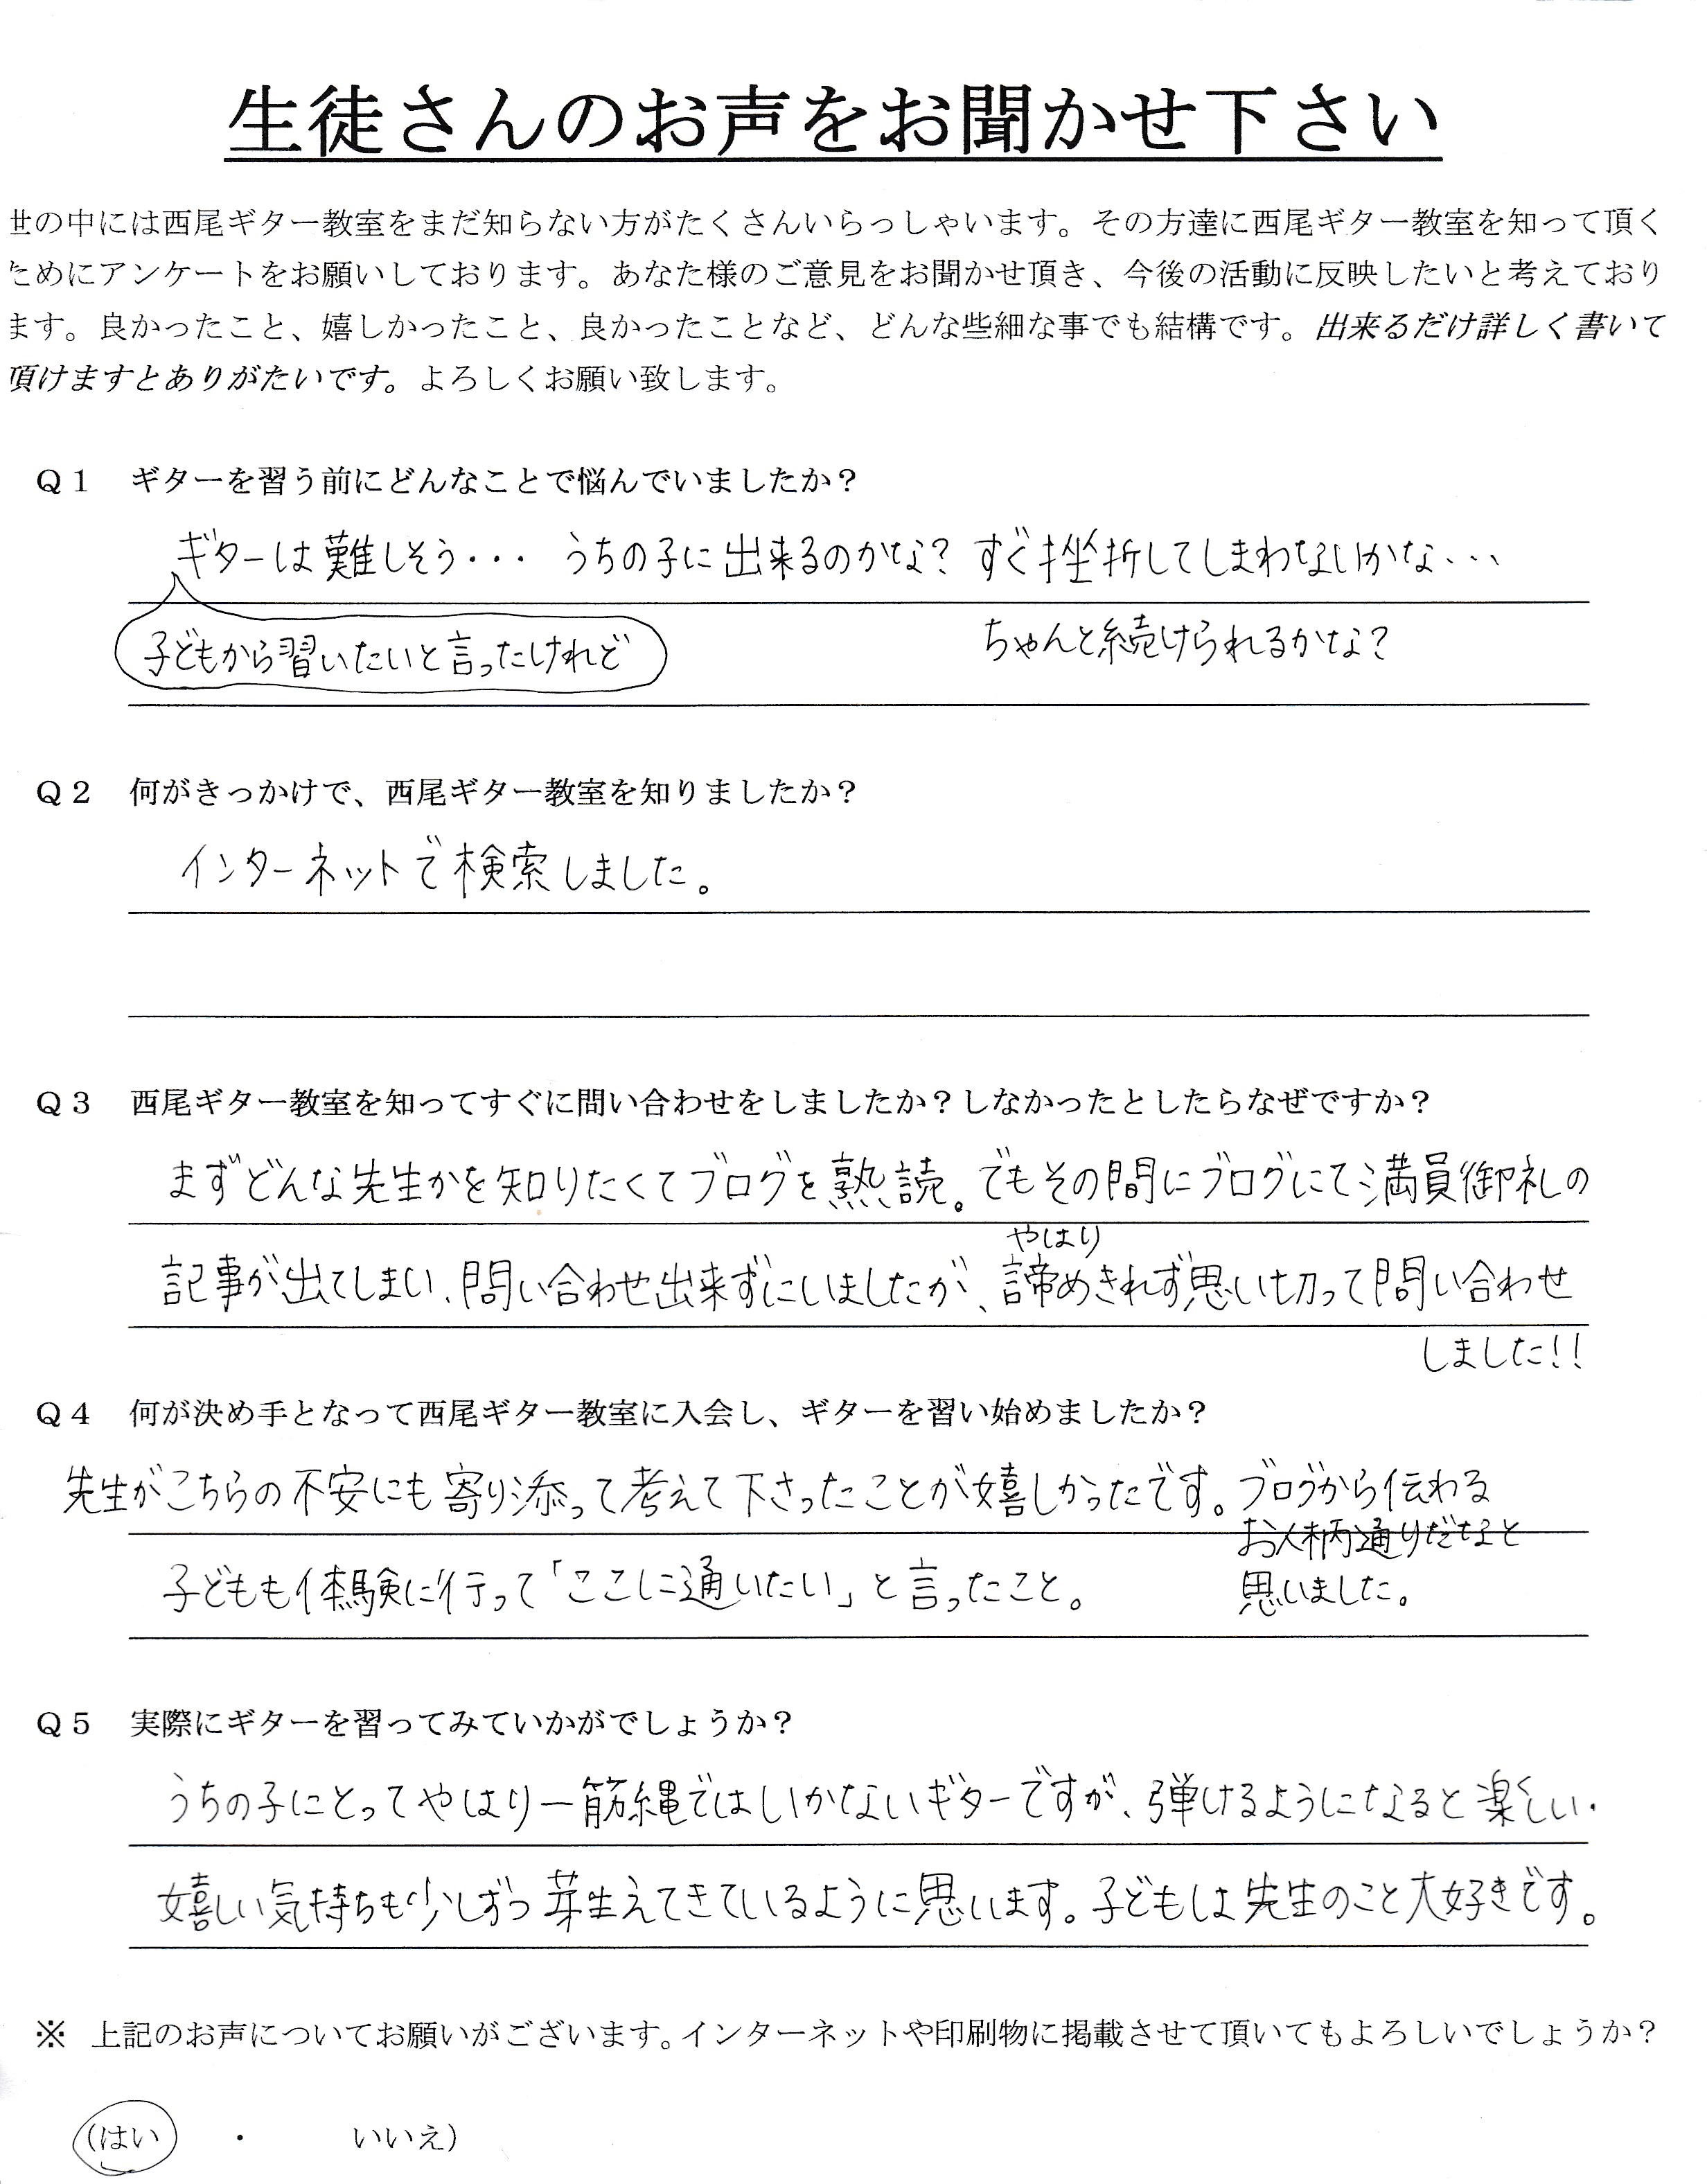 生徒さんのお声をお聞かせ下さい
世の中には西尾ギター教室をまだ知らない方がたくさんいらっしゃいます。その方達に西尾ギター教室を知って頂く
ためにアンケートをお願いしております。あなた様のご意見をお聞かせ頂き、今後の活動に反映したいと考えており
ます。良かったこと、嬉しかったこと、良かったことなど、どんな些細な事でも結構です。出来るだけ詳しく書いて
頂けますとありがたいです。よろしくお願い致します。
Q1 ギターを習う前にどんなことで悩んでいましたか？
ギターは難しそう・・・ うちの子に出来るのかな？ すぐ挫折してしまわないかな・・・
子どもから習いたいと言ったけれど
ちゃんと続けられるかな？
Q2 何がきっかけで、西尾ギター教室を知りましたか？
インターネットで検索しました。
Q3 西尾ギター教室を知ってすぐに問い合わせをしましたか？しなかったとしたらなぜですか？
まずどんな先生かを知りたくてブログを熟読。でもその間にブログにて満員御礼の
記事が出てしまい、問い合わせ出来ずにいましたが、やはり諦めきれず思い切って問い合わせ
しました!!
Q4 何が決め手となって西尾ギター教室に入会し、ギターを習い始めましたか？
先生がこちらの不安にも寄り添って考えて下さったことが嬉しかったです。ブログから伝わる
お人柄通りだなと
思いました。
子どもも体験に行って「ここに通いたい」と言ったこと。
Q5 実際にギターを習ってみていかがでしょうか？
うちの子にとってやはり一筋縄ではいかないギターですが、弾けるようになると楽しい・
嬉しい気持ちも少しずつ芽生えてきているように思います。子どもは先生のこと大好きです。
※ 上記のお声についてお願いがございます。インターネットや印刷物に掲載させて頂いてもよろしいでしょうか？
(はい ・ いいえ)